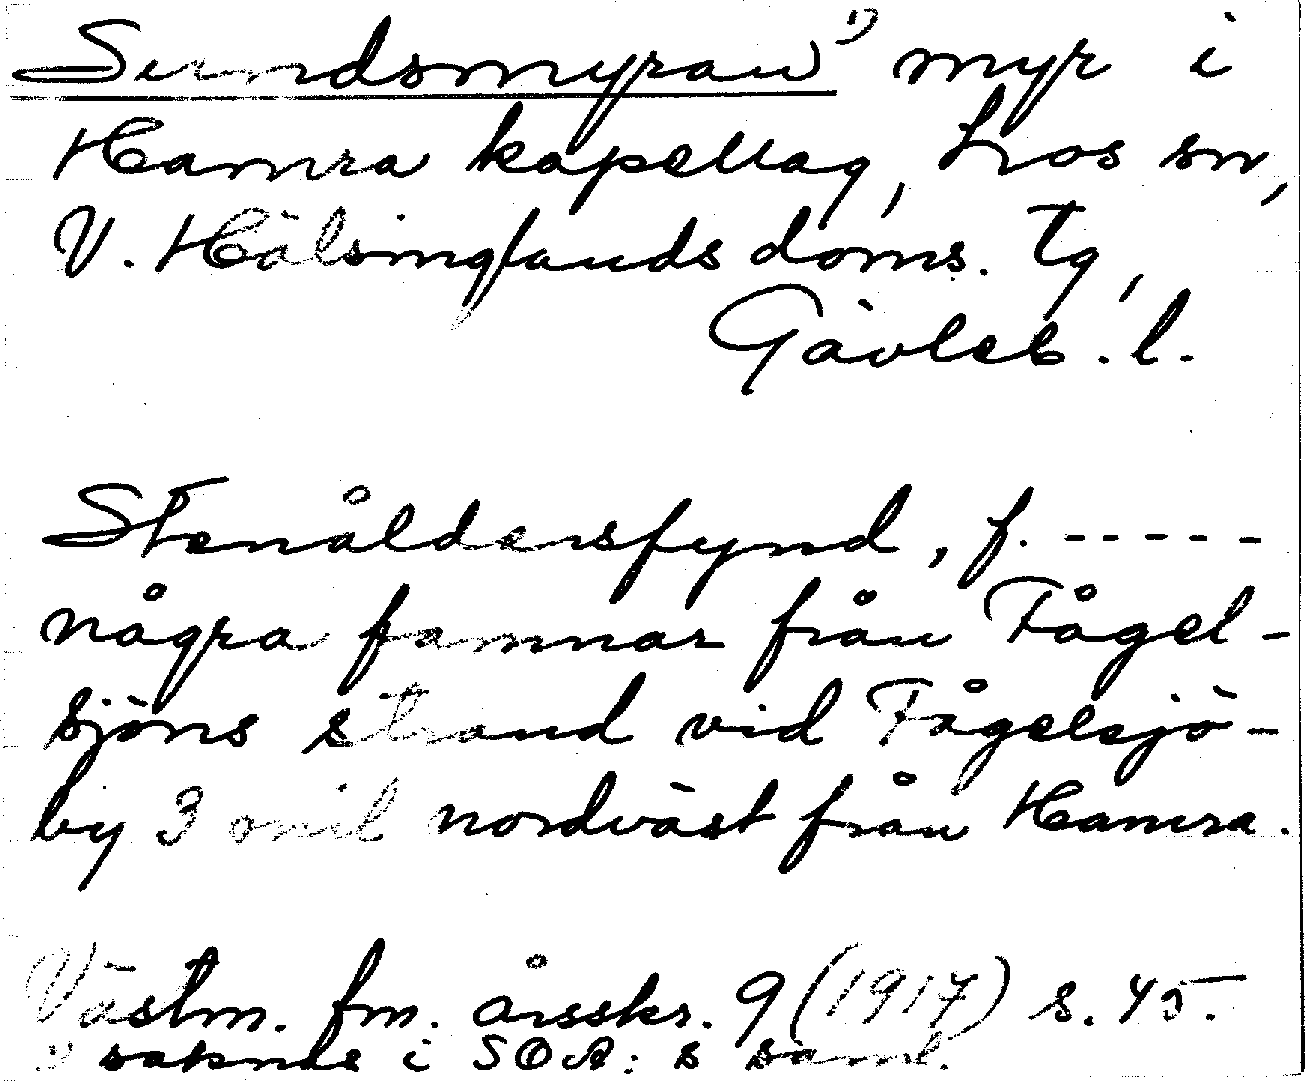 Sundsmyran 1) myr i
Hamra kapellag, Los sn,
V. Hälsinglands doms. tg,
Gävleb. l.
Stenåldersfynd, f. -----
några famnar från Fågel-
sjöns strand vid Fågelsjö-
by 3 mil nordväst från Hamra.
Västm. fm. årsskr. 9 (1917) s. 45.
1) saknas i SOA:s saml.